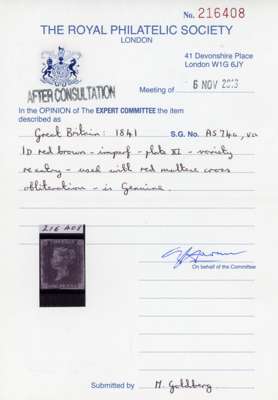 No. 216408
THE ROYAL PHILATELIC SOCIETY
LONDON
41 Devonshire Place
London W1G 6JY
Meeting of 6 NOV 2013
AFTER CONSULTATION
In the OPINION of The EXPERT COMMITTEE the item
described as
Great Britain: 1841 S.G. No. AS74a, va
1D red brown - imperf - plate XI - variety
re entry - used with red maltese cross
obliteration - is Genuine.
216408
On behalf of the Committee
Submitted by M. Goldberg